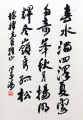 春水滿四澤夏雲
多奇峯秋月揚明
輝冬嶺秀孤松